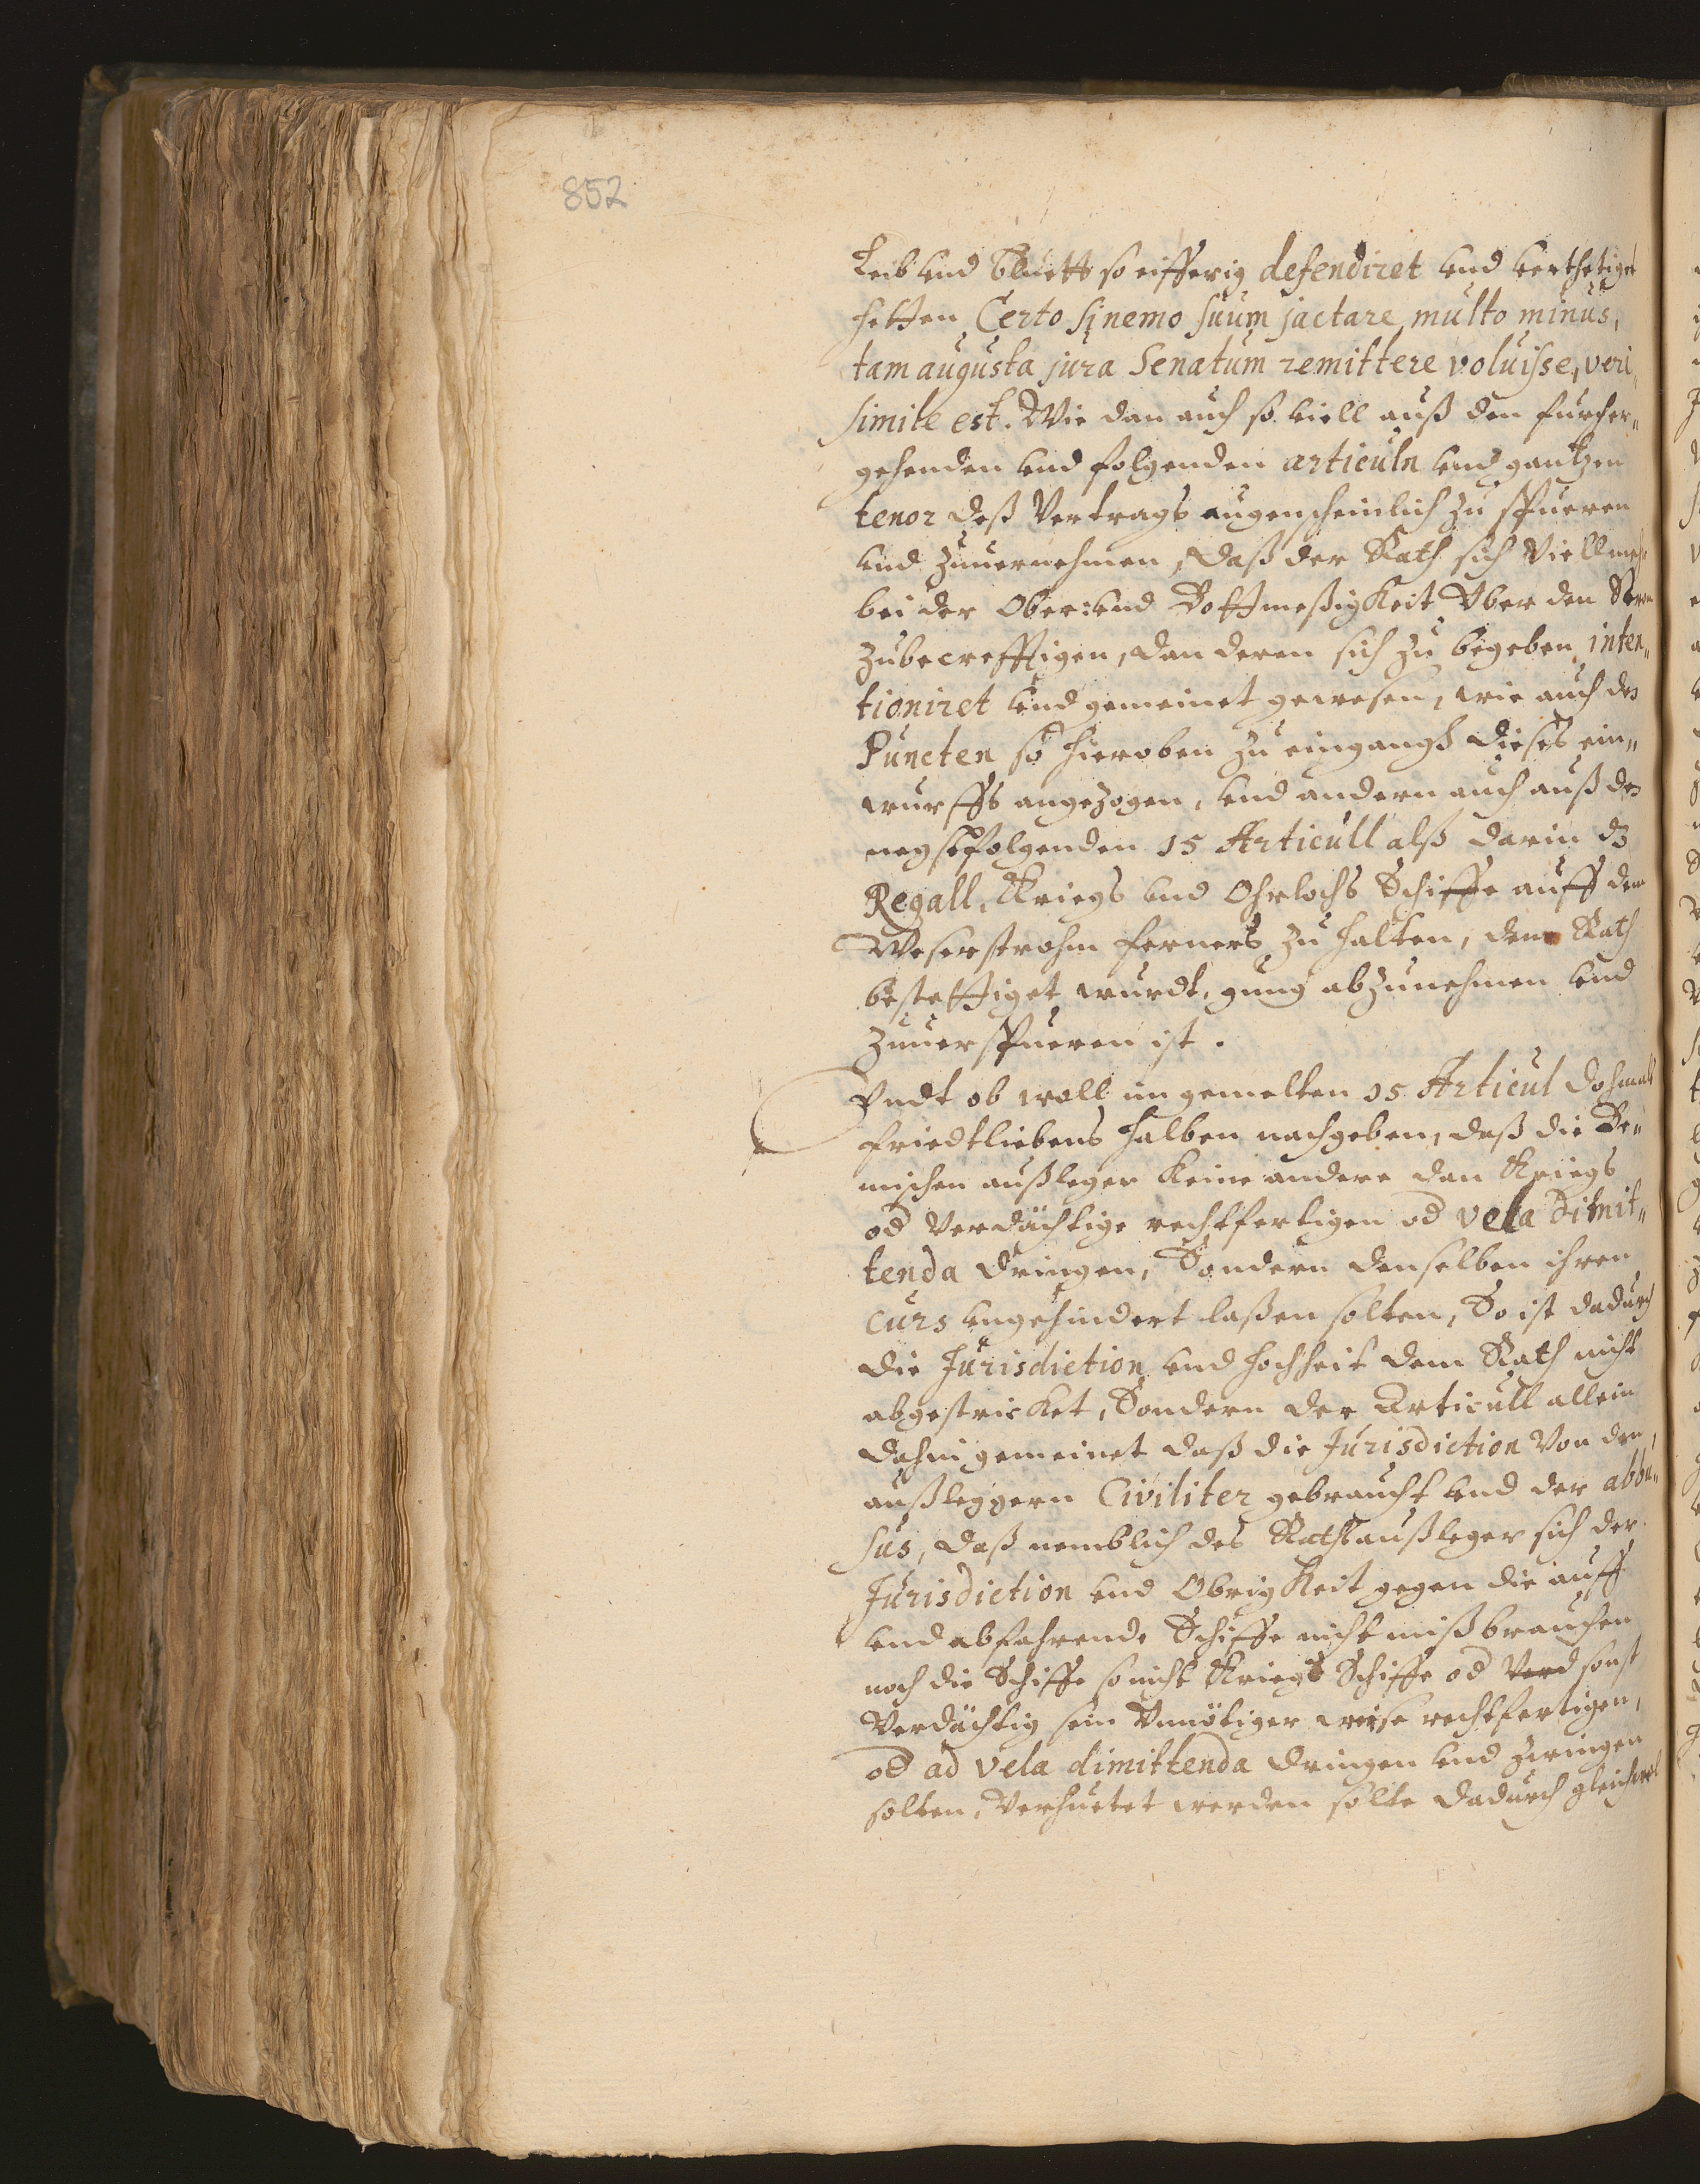 852
Leib und Bluett so eifferig defendiret und verthetiget
hetten, Certo si nemo suum jactare, multo minus,
tam augusta jura Senatum remittere voluisse, veri„
simile est. Wie dan auch so viell auß den fürher„
gehenden und folgenden articuln und gantzen
tenor deß Vertrags augenscheinlich zu spueren
und zuuernehmen, daß der Rath sich Viellmehr
bei der Ober: und Bottmeßigkeit Uber den Strom
zubecrefftigen, dan deren sich zu begeben, inten„
tioniret und gemeinet gewesen, wie auch des
Puncten so hieroben zu eingangß dieses ein„
wurffs angezogen, und andern auch auß des
negstfolgenden 15 Articull alß darin dz
Regall, Kriegs und Ohrlochs Schiffe auff dem
Weserstrohm ferners zu halten, dem Rath
bestettiget wurdt, gnug abzunehmen und
zuuerspueren ist.
Undt ob woll im gemelten 15 Articul dohmals
friedtliebens halben nachgeben, daß die Bre„
mischen außleger keine andere dan Kriegs
od Verdächtige rechtfertigen od vela dimit„
tenda dringen, Sondern denselben ihren
curs ungehindert laßen solten, So ist dadurch
die Jurisdiction und hochheit dem Rath nicht
abgestricket, Sondern der Articull allein
dahin gemeinet daß die Jurisdiction Von den
außleggern Civiliter gebraucht und der abbu„
sus, daß nemblich des Raths außleger sich der
Jurisdiction und Obrigkeit gegen die auff
und abfahrende Schiffe nicht mißbrauchen
noch die Schiffe so nicht Kriegs Schiffe od Verd sonst
Verdächtig sein Unnötiger weise rechtfertigen,
od ad vela dimittenda dringen und zwingen
solten, Verhuetet werden solte dadurch gleichwol